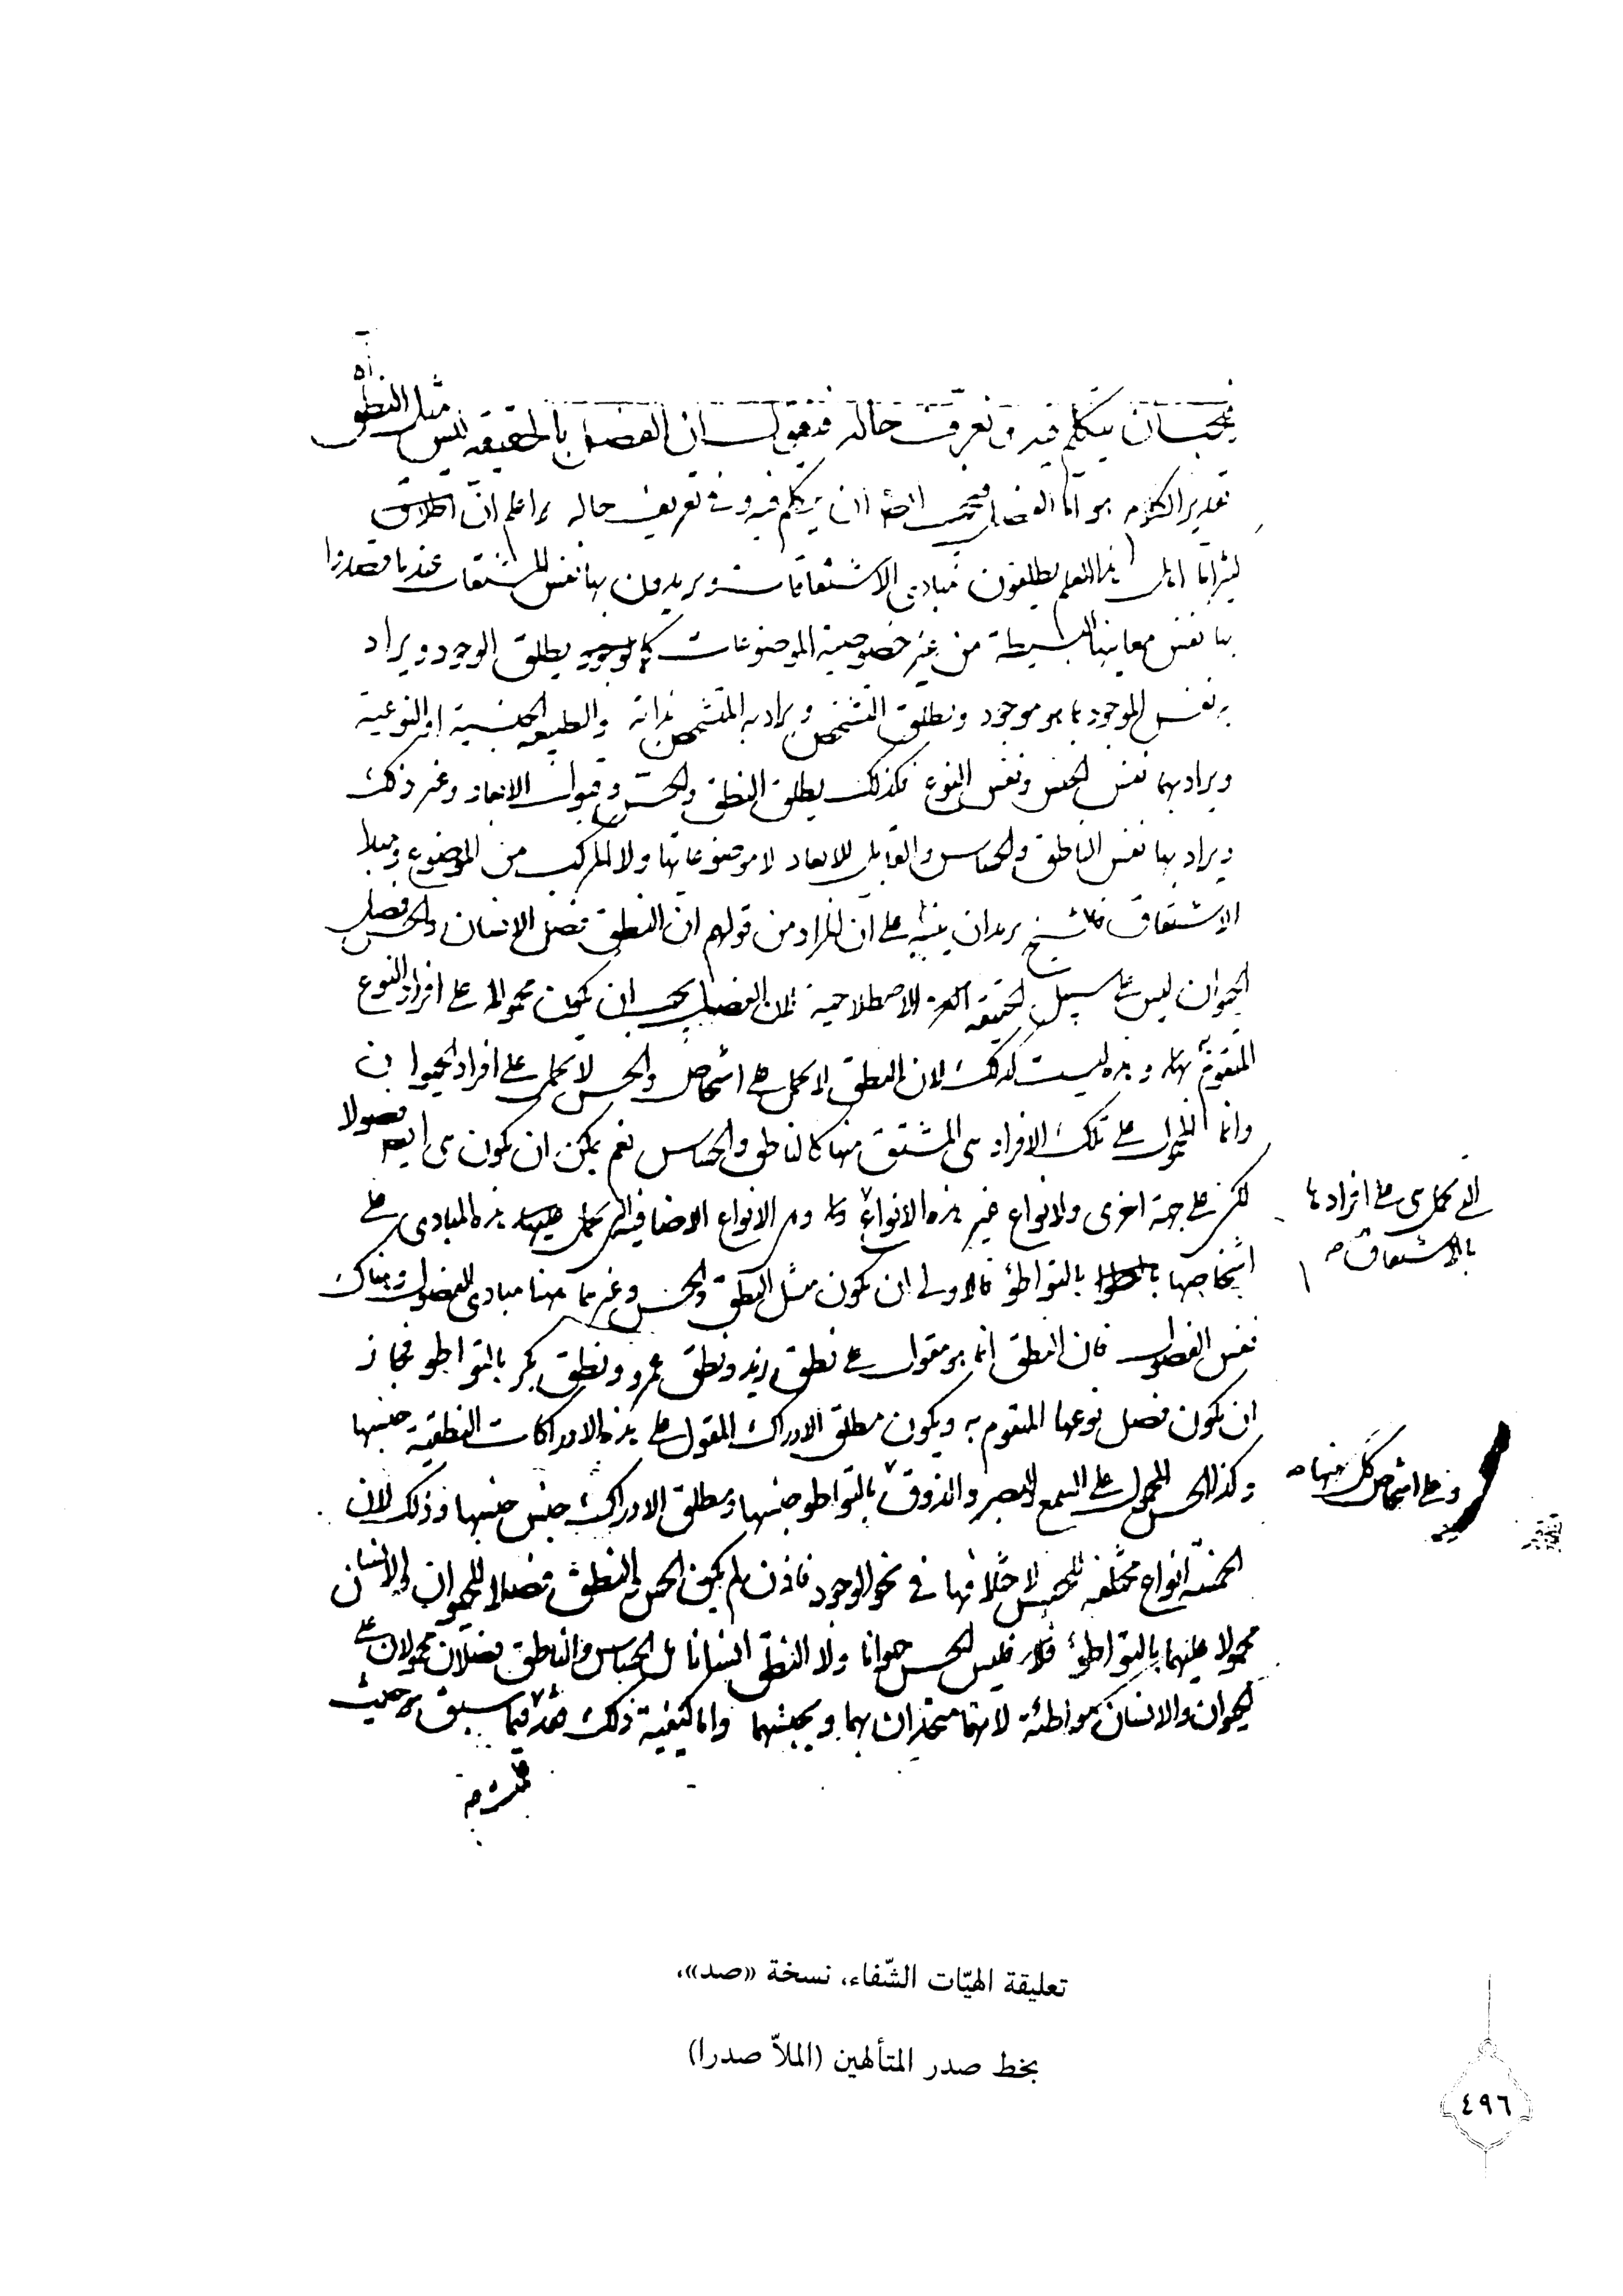 فيجب ان يتكلم فيه و نعرف حاله فنقول ان الفصل بالحقيقه ليس مثل النطق
تقدير الكلام هو اما الفصل فيجب ايضا ان يتكلم فيه و في تعريف حاله و اعلم ان اطلاق
كثيرا ما اهل هذا العلم يطلقون مبادى الاشتقاقات و يريدون بها نفس المشتقات عندما قصدوا
بها نفس معانيها البسيطة من غير خصوصية الموضوعات كما يطلق الوجود و يراد
به نفس الموجود بما هو موجود و يطلق التشخص و يراد به المتشخص بذاته و الطبيعه الجنسية او النوعية
و يراد بهما نفس الجنس و نفس النوع فكذلك يطلق النطق و الحس و قبول الابعاد و غير ذلك
و يراد بها نفس الناطق و الحساس و القابل للابعاد لا موضوعاتها و لا المركب من الموضوع و مبدا
الاشتقاق فالشيخ يريد ان ينبه على ان المراد من قولهم ان النطق فصل الانسان و الحس فصل
الحيوان ليس على سبيل الحقيقه الاصطلاحية لان الفصل يجب ان يكون محمولا على افراد النوع
المتقوم به و هذه ليست كذلك لان النطق لا يحمل على اشخاص و الحس لا يحمل على افراد الحيوان
و انما المحمول على تلك الافراد هى المشتق منها كالناطق و الحساس نعم يمكن ان يكون هى ايضا فصولا
لكن على جهة اخرى و لانواع غير هذه الانواع و هى الانواع الاضافية التى يحمل هذه المبادى على
التى يحمل هى على افرادها
بالاشتقاق صح
اشخاصها بالتواطؤ فالاولى ان يكون مثل النطق و الحس و غيرهما هنا مبادى الفصول و هناك
نفس الفصول فان النطق انما هو مقول على نطق زيد و نطق عمرو و نطق بكر بالتواطؤ فجاز
ان يكون فصل نوعها المتقوم به و يكون مطلق الادراك المقول على هذه الادراكات النطقية جنسها
و كذا الحس المحمول على السمع و البصر و الذوق بالتواطؤ جنسها و مطلق الادراك جنس جنسها و ذلك لان
و على اشخاص كل منها صح
الخمسة انواع مختلفة للحس لاختلافها في نحو الوجود فاذن لم يكن الحس و النطق فصلا للحيوان و الانسان
محمولا عليهما بالتواطؤ فليس الحس حيوانا و لا النطق انسانا بل الحساس و الناطق فصلان محمولان على
الحيوان و الانسان مواطئة لانهما متحدان بهما و بجنسهما و اما كيفية ذلك فقد فيما سبق من حيث
تعليقة الهيّات الشّفاء، نسخة «صد»،
بخط صدر المتألهين (الملاّ صدرا)
٤٩٦